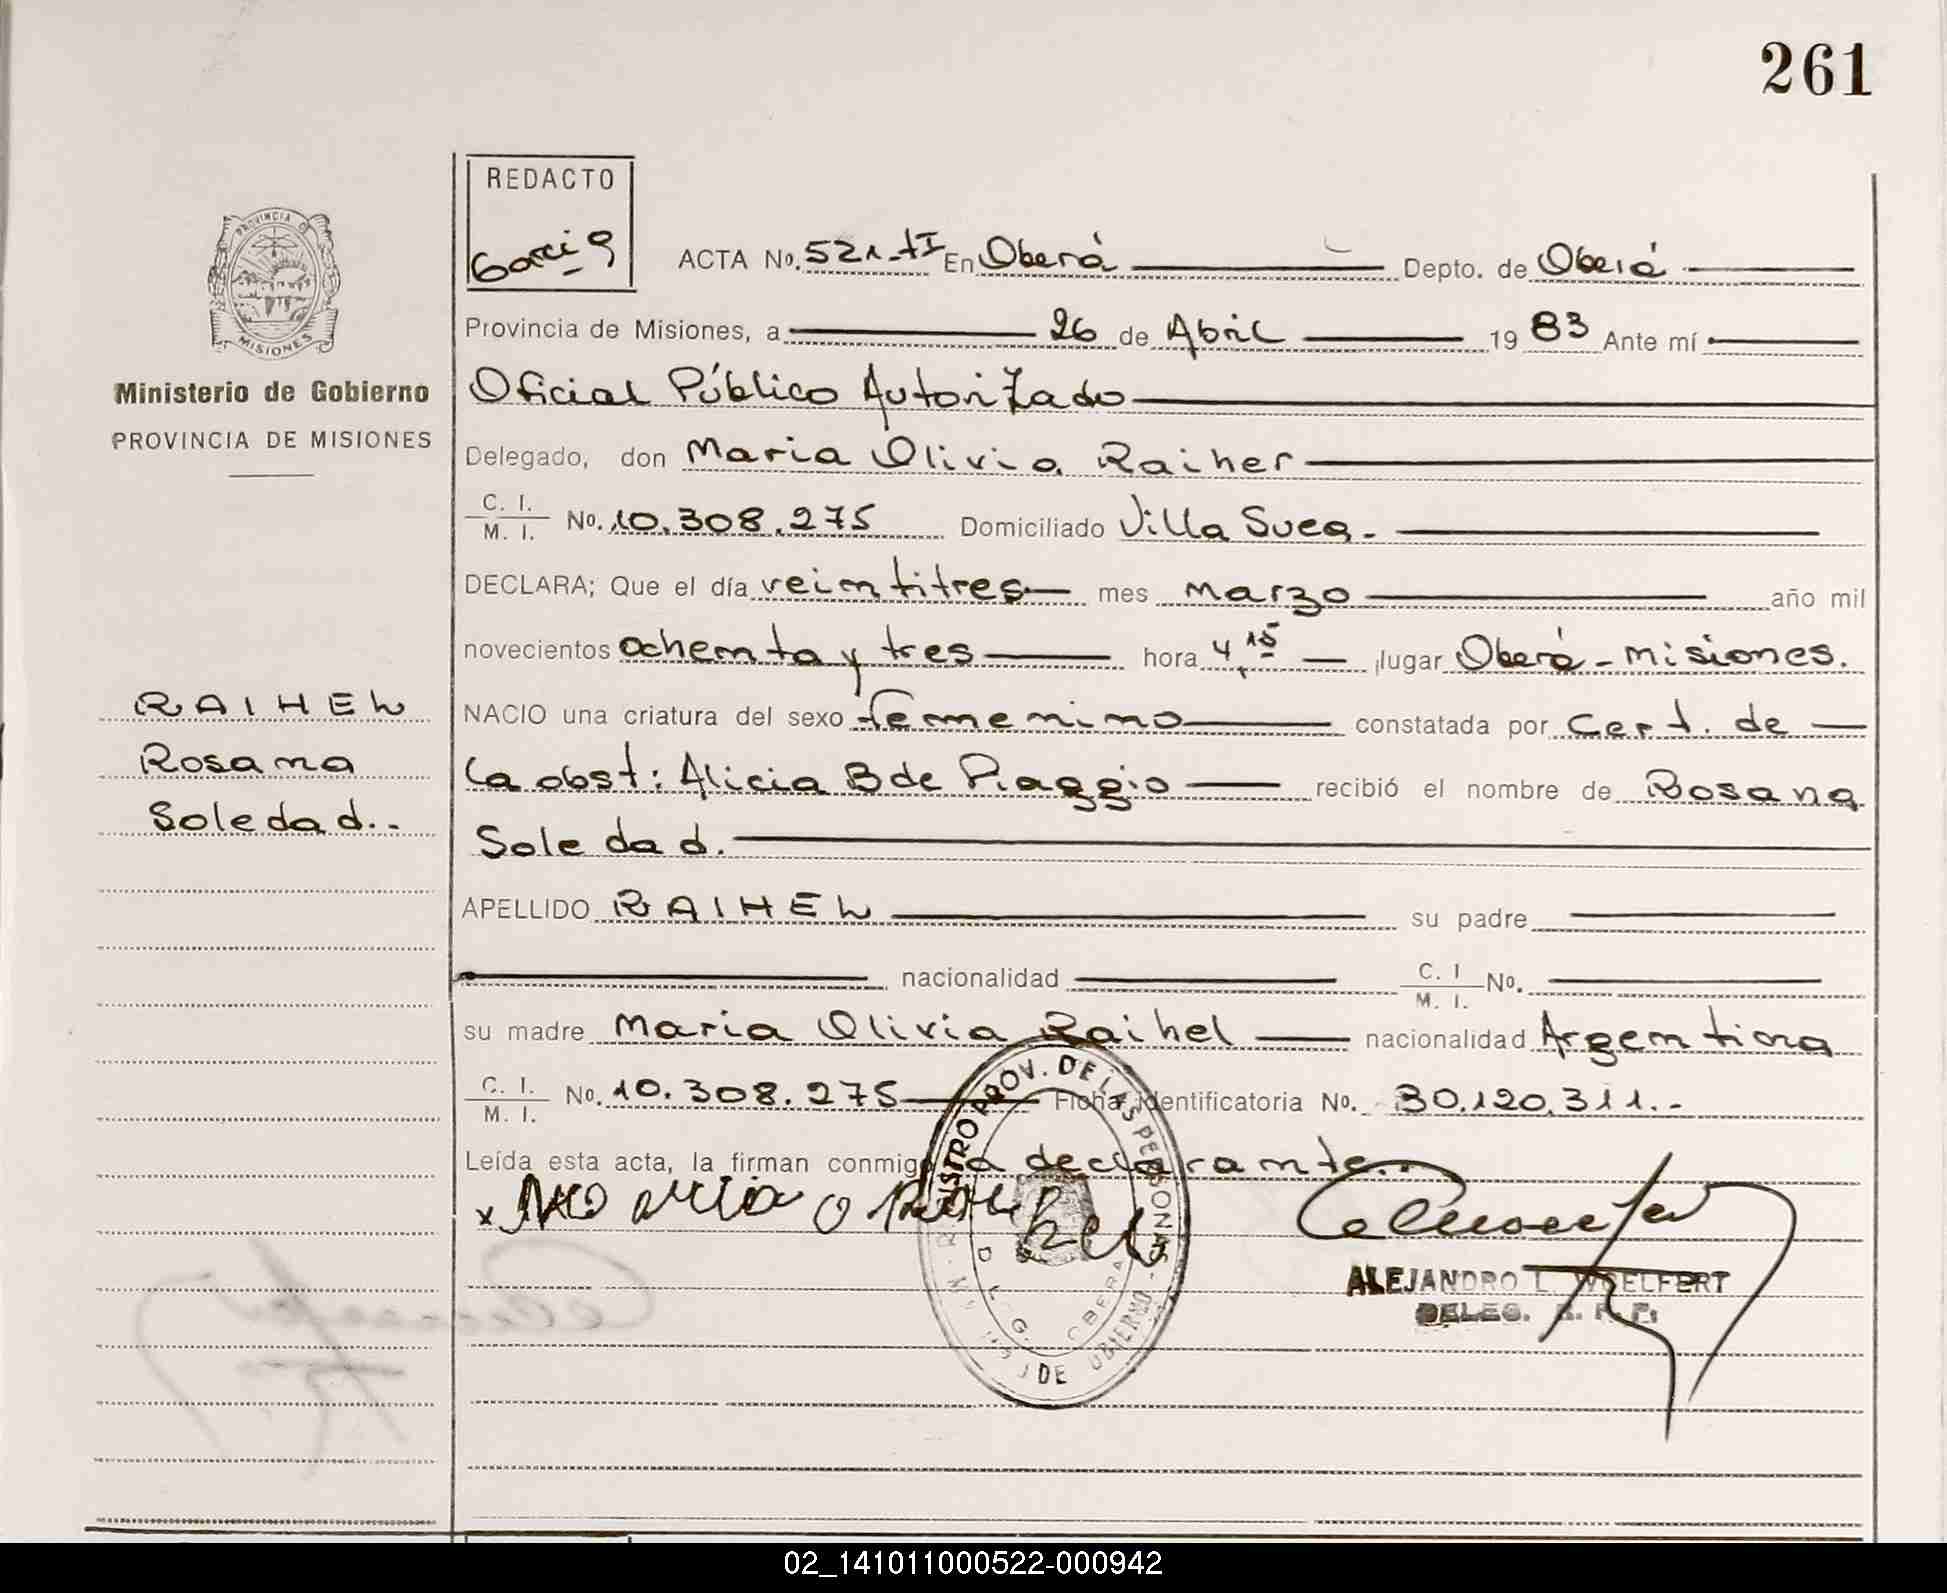 261
REDACTO
Garcia
PROVINCIA D
MISIONES
Ministerio de Gobierno
PROVINCIA DE MISIONES
ACTA No. 521-tI En Oberá Depto. de Oberá
Provincia de Misiones, a 26 de Abril 1983 Ante mí
Oficial Público Autorizado
Delegado, don Maria Olivia Raiher
C. I. / M. I. No. 10.308.275 Domiciliado Villa Svea.-
DECLARA; Que el día veintitres mes marzo año mil
novecientos ochenta y tres hora 4,15 lugar Oberá-misiones.
RAIHEL
Rosana
Soledad.-
NACIO una criatura del sexo femenino constatada por Cert. de
la obst: Alicia B de Piaggio recibió el nombre de Rosana
Soledad.
APELLIDO RAIHEL su padre
nacionalidad C. I / M. I. No.
su madre Maria Olivia Raihel nacionalidad Argentina
C. I. / M. I. No. 10.308.275 Ficha identificatoria No. 30.120.311.-
Leída esta acta, la firman conmigo la declarante.-
ALEJANDRO L. WOELFERT
DELEG. R. P. P.
02_141011000522-000942